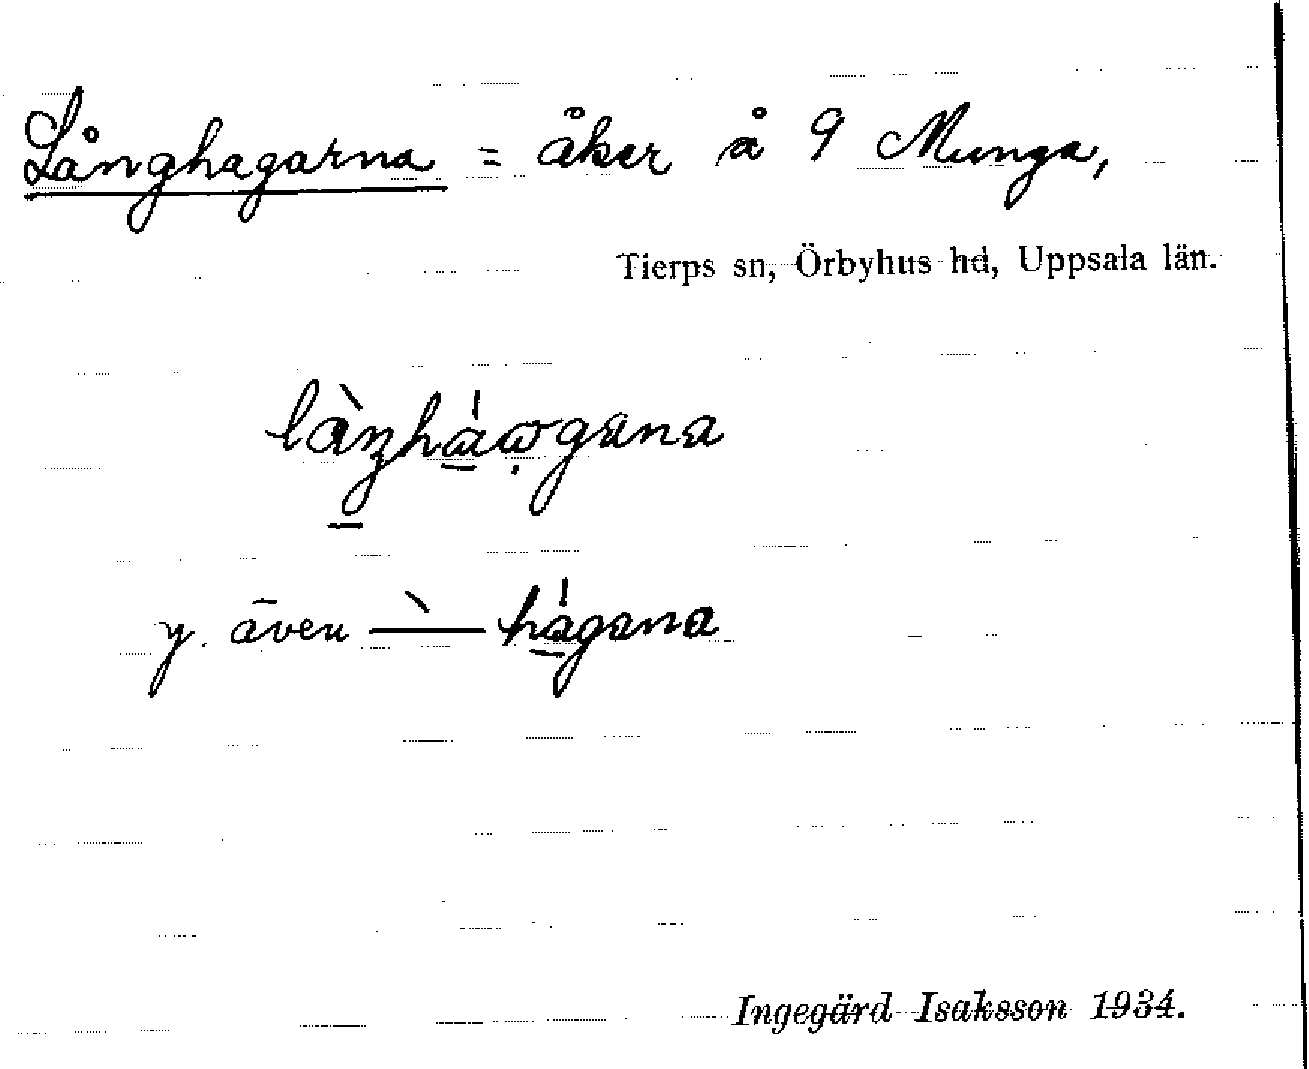 Långhagarna = åker å 9 Munga,
Tierps sn, Örbyhus hd, Uppsala län.
y. även
Ingegärd Isaksson 1934.